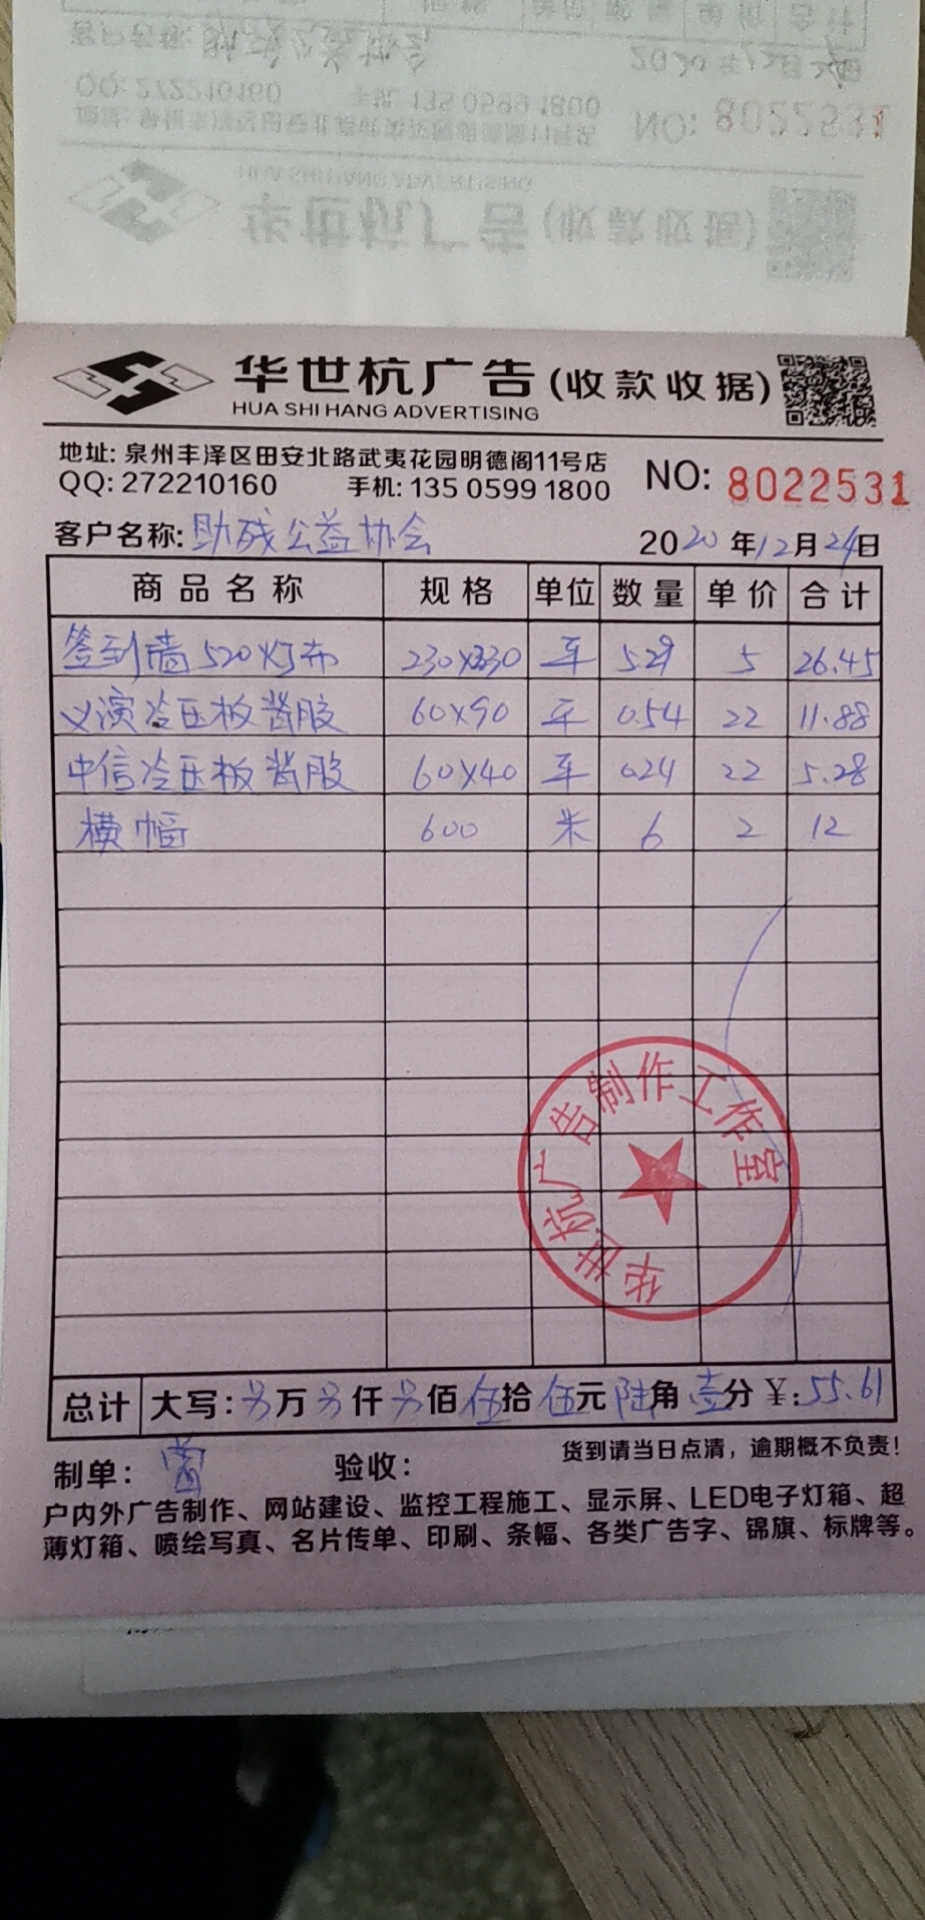 华世杭广告(收款收据)
HUA SHI HANG ADVERTISING
地址: 泉州丰泽区田安北路武夷花园明德阁11号店
QQ: 272210160 手机: 135 0599 1800 NO: 8022531
客户名称: 助残公益协会 2020年12月24日
商品名称 规格 单位 数量 单价 合计
签到墙520灯布 230X230 平 5.29 5 26.45
义演冷压板背胶 60X90 平 0.54 22 11.88
中信冷压板背胶 60X40 平 0.24 22 5.28
横幅 600 米 6 2 12
华世杭广告制作工作室
总计 大写: 万 仟 佰 伍拾 伍元 陆角 壹分 ¥: 55.61
货到请当日点清，逾期概不负责!
制单: 验收:
户内外广告制作、网站建设、监控工程施工、显示屏、LED电子灯箱、超
薄灯箱、喷绘写真、名片传单、印刷、条幅、各类广告字、锦旗、标牌等。